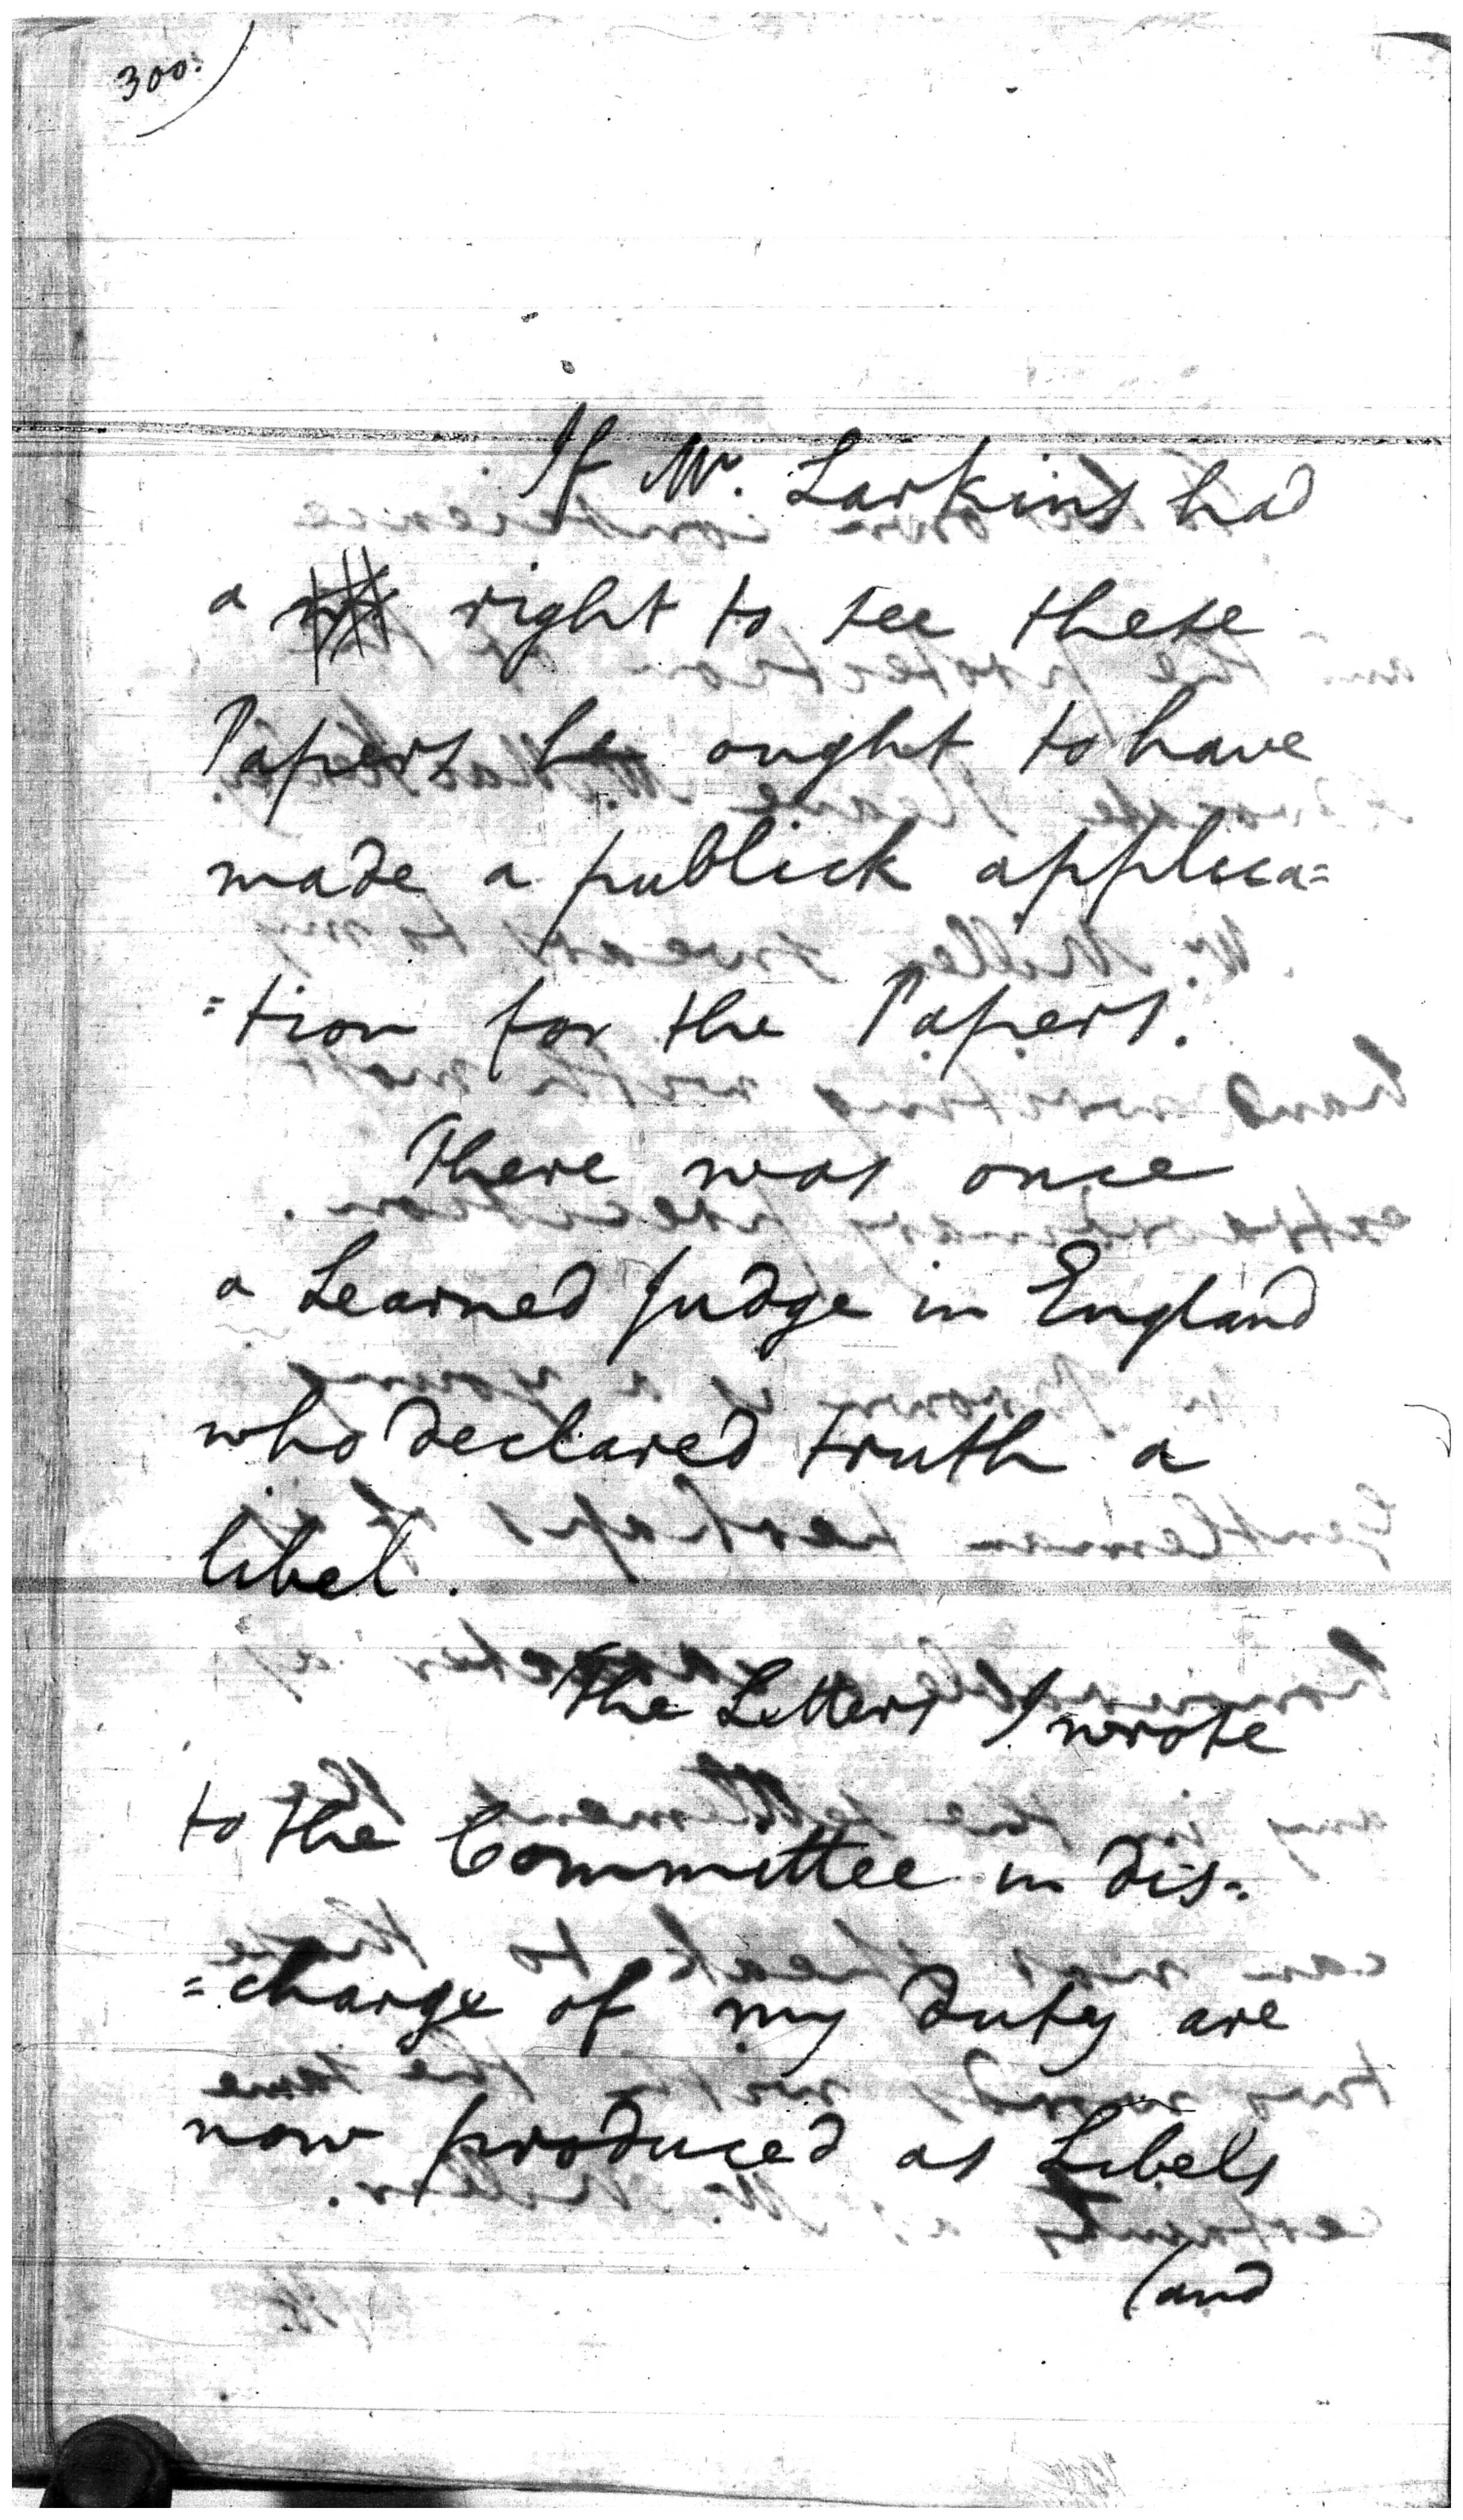 300.
If Mr. Larkins had
a right to see these
Papers he ought to have
made a publick applica=
=tion for the Papers.
There was once
a Learned Judge in England
who declared truth a
libel.
The Letters I wrote
to the Committee in dis=
=charge of my Duty are
now produced as Libels
(and